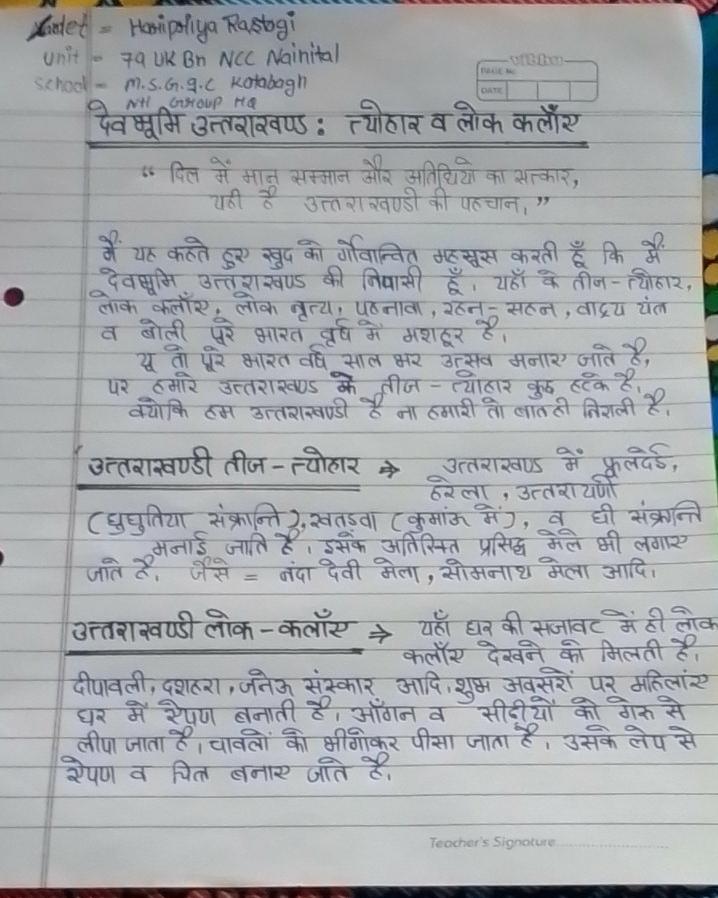 Cadet = Haripriya Rastogi
Unit = 79 UK Bn NCC Nainital
School = M.S.G.G.C Kotabagh
NTL GROUP HQ
vibha
PAGE NO.
DATE
देवभूमि उत्तराखण्ड : त्योहार व लोक कलाँए
“ दिल में मान सम्मान और अतिथियो का सत्कार,
यही है उत्तराखण्डी की पहचान। ”
मैं यह कहते हुए खुद को गौवान्वित महसूस करती हूँ कि मैं
देवभूमि उत्तराखण्ड की निवासी हूँ। यहाँ के तीज - त्योहार,
लोक कलाँए, लोक नृत्य, पहनावा, रहन - सहन, वाद्रय यंत
व बोली पूरे भारत वर्ष में मशहूर है।
यू तो पूरे भारत वर्ष साल भर उत्सव मनाए जाते है,
पर हमारे उत्तराखण्ड के तीज - त्योहार कुछ हटके है।
क्योकि हम उत्तराखण्डी है ना हमारी तो बात ही निराली है।
उत्तराखण्डी तीज - त्योहार → उत्तराखण्ड में फूलदेई,
हरेला, उत्तरायणी
(घुघुतिया संक्रान्ति), खतडवा (कुमांऊ में), व घी संक्रान्ति
मनाई जाति है। इसके अतिरिक्त प्रसिद्ध मेले भी लगाए
जाते है। जैसे = नंदा देवी मेला, सोमनाथ मेला आदि।
उत्तराखण्डी लोक - कलाँए → यहाँ घर की सजावट में ही लोक
कलाँए देखने को मिलती है।
दीपावली, दशहरा, जनेऊ संस्कार आदि शुभ अवसरों पर महिलांए
घर में ऐपण बनाती है। आँगन व सीढीयों को गेरू से
लीपा जाता है। चावलों को भीगोकर पीसा जाता है। उसके लेप से
ऐपण व चित बनाए जाते है।
Teacher's Signature